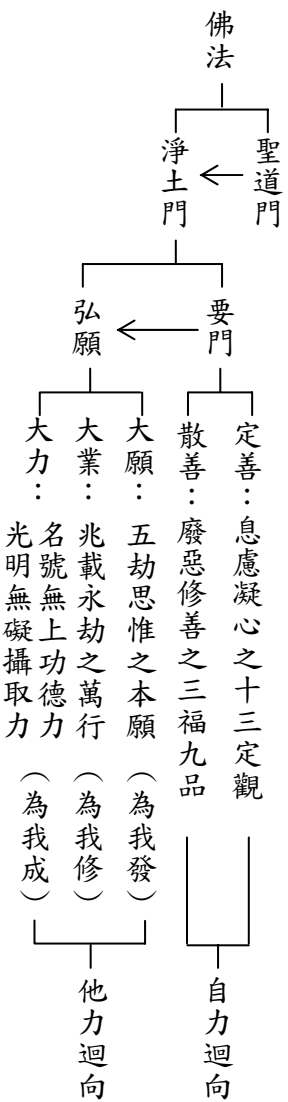 佛法
聖道門
淨土門
要門
弘願
定善：息慮凝心之十三定觀
散善：廢惡修善之三福九品
自力迴向
大願：五劫思惟之本願（為我發）
大業：兆載永劫之萬行（為我修）
大力：名號無上功德力
光明無礙攝取力（為我成）
他力迴向